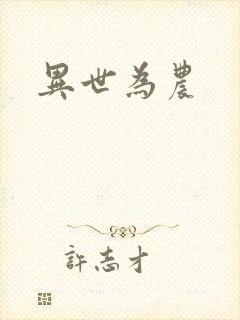 異世為農
許志才